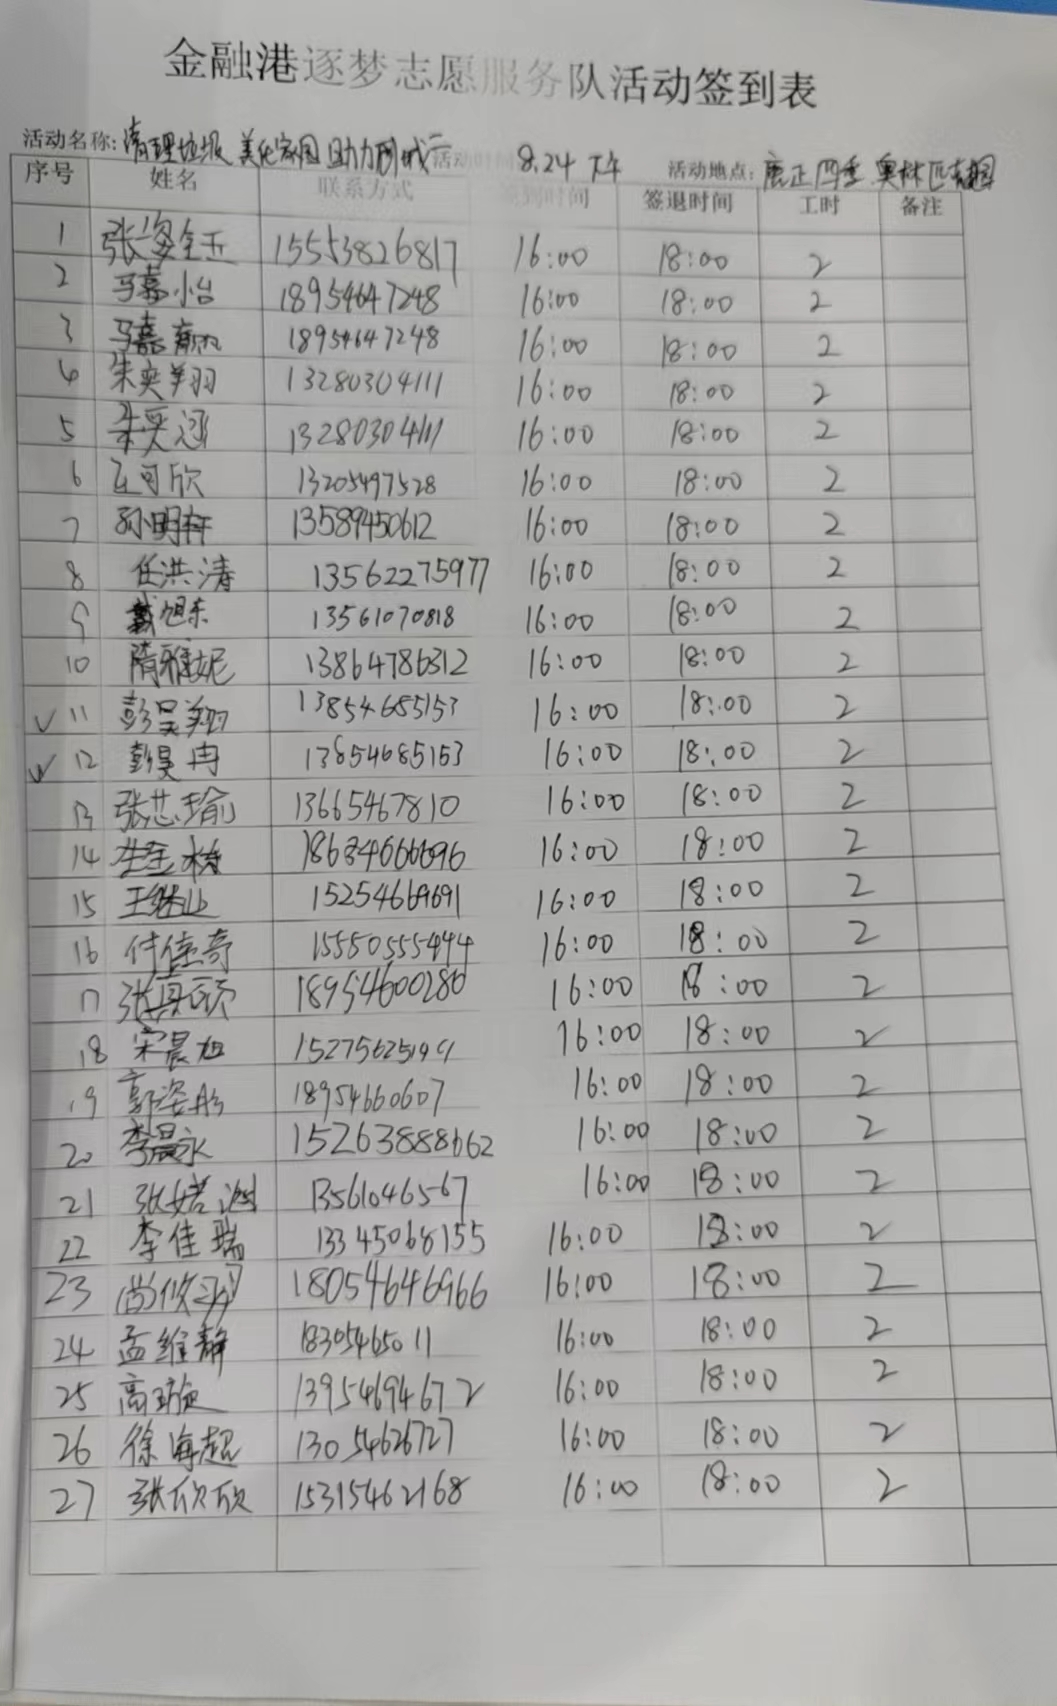 金融港逐梦志愿服务队活动签到表
活动名称: 清理垃圾 美化家园 助力创城 活动时间 8.24 下午 活动地点: 鹿正四季 奥林匹克花园
序号 姓名 联系方式 签到时间 签退时间 工时 备注
1 15553826817 16:00 18:00 2
2 马嘉怡 18954647248 16:00 18:00 2
3 马嘉 18954647248 16:00 18:00 2
4 朱奕翔 13280304111 16:00 18:00 2
5 朱奕涵 13280304111 16:00 18:00 2
6 可欣 13205497528 16:00 18:00 2
7 孙明轩 13589450612 16:00 18:00 2
8 任洪涛 13562275977 16:00 18:00 2
9 戴旭东 13561070818 16:00 18:00 2
10 隋雅妮 13864786312 16:00 18:00 2
✓ 11 彭昊翔 13854685153 16:00 18:00 2
✓ 12 彭昊冉 13854685153 16:00 18:00 2
13 张芯瑜 13665467810 16:00 18:00 2
14 16:00 18:00 2
15 王继业 15254669691 16:00 18:00 2
16 付佳奇 15550555494 16:00 18:00 2
17 张 18954600280 16:00 18:00 2
18 宋晨旭 16:00 18:00 2
19 郭姿彤 18954660607 16:00 18:00 2
20 李晨永 15263888662 16:00 18:00 2
21 张婼 13561046567 16:00 18:00 2
22 李佳瑞 13345068155 16:00 18:00 2
23 尚攸 18054646966 16:00 18:00 2
24 孟维静 18305465011 16:00 18:00 2
25 高璇 13954694672 16:00 18:00 2
26 徐海超 13054626727 16:00 18:00 2
27 张欣欣 15315462168 16:00 18:00 2